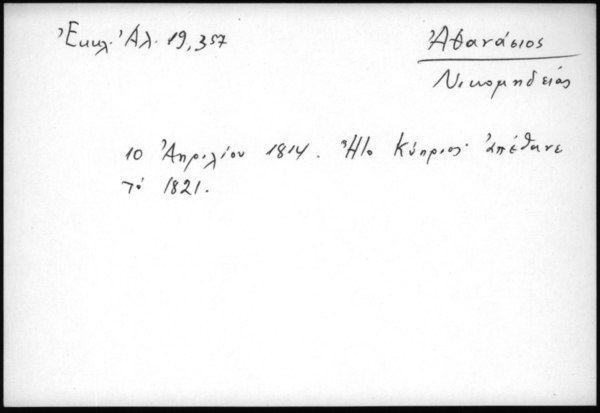 Ἐκκλ. Ἀλ. 19,357
Ἀθανάσιος
Νικομηδείας
10 Ἀπριλίου 1814. Ἦτο Κύπριος· ἀπέθανε
τό 1821.